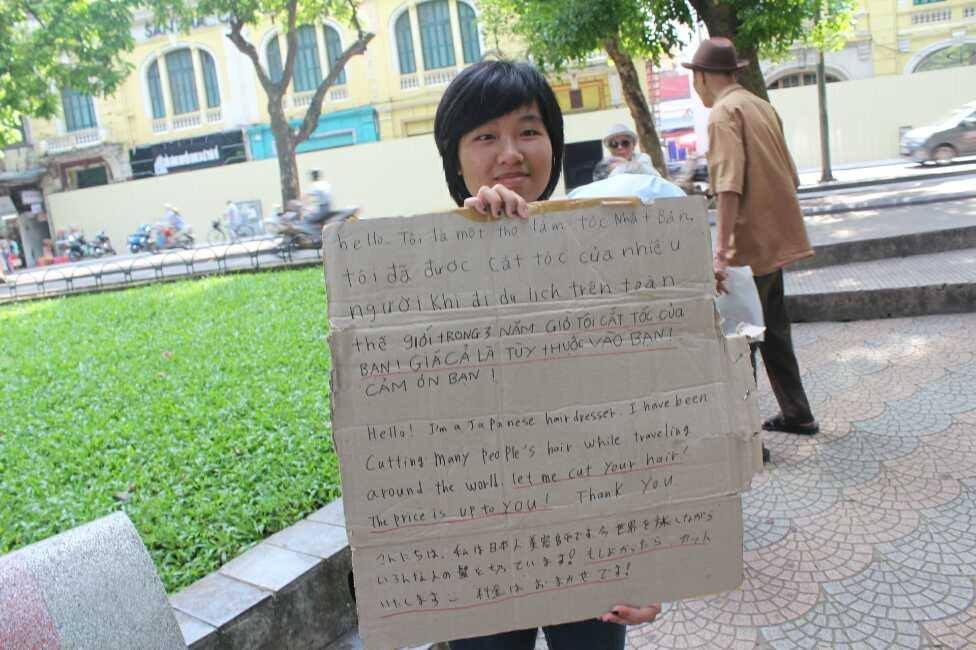 hello. Tôi là một thợ làm tóc Nhật Bản.
tôi đã được cắt tóc của nhiều
người khi đi du lịch trên toàn
thế giới TRONG 3 NĂM GIỜ TÔI CẮT TÓC CỦA
BẠN! GIÁ CẢ LÀ TÙY THUỘC VÀO BẠN!
CẢM ƠN BẠN!
Hello! I'm a Japanese hairdresser. I have been
Cutting many people's hair while traveling
around the world. let me cut your hair!
The price is up to YOU! Thank You
こんにちは、私は日本人美容師です。今世界を旅しながら
いろんな人の髪を切っています! もしよかったら カット
いたします 料金は おまかせです!